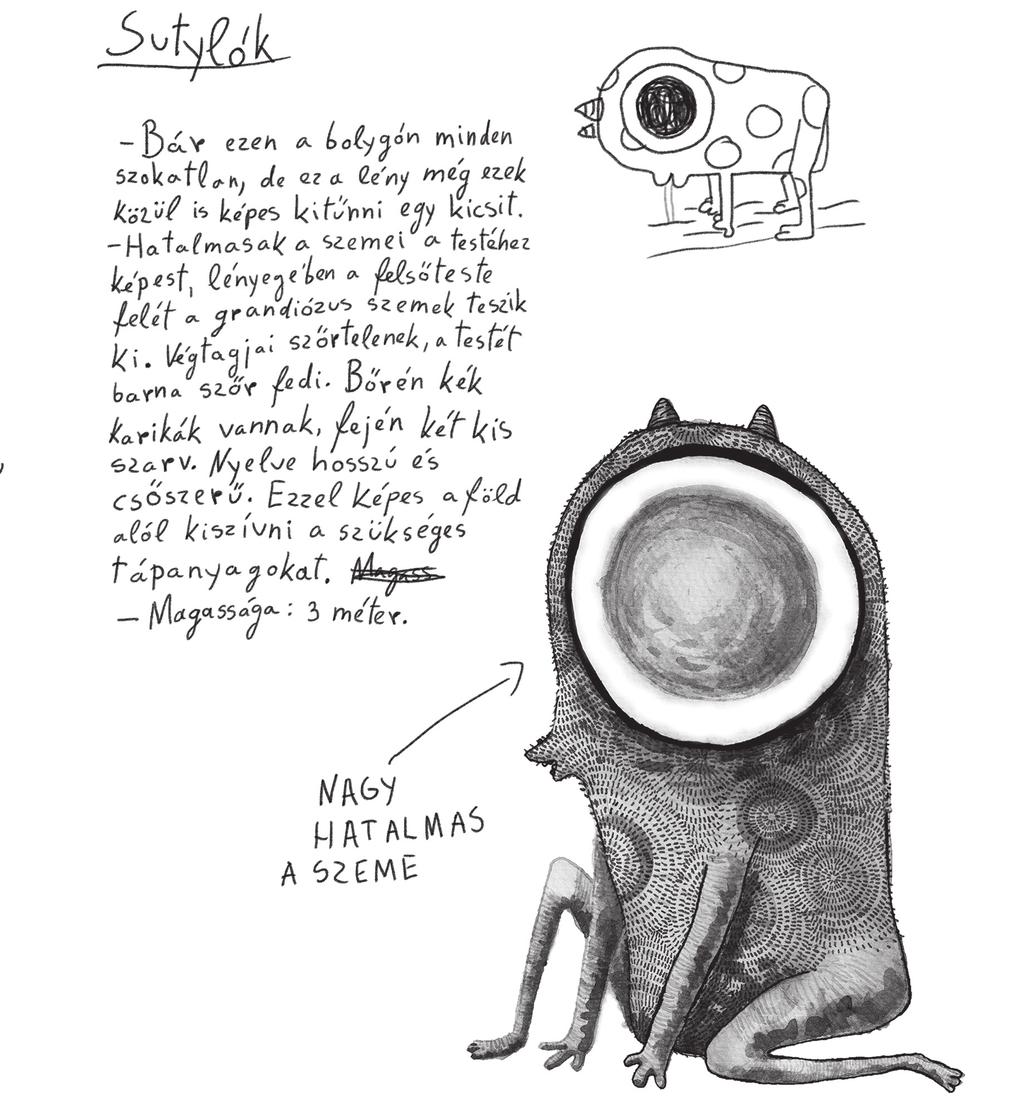 Sutylók
- Bár ezen a bolygón minden
szokatlan, de ez a lény még ezek
közül is képes kitűnni egy kicsit.
- Hatalmasak a szemei a testéhez
képest, lényegében a felsőteste
felét a grandiózus szemek teszik
ki. Végtagjai szőrtelenek, a testét
barna szőr fedi. Bőrén kék
karikák vannak, fején két kis
szarv. Nyelve hosszú és
csőszerű. Ezzel képes a föld
alól kiszívni a szükséges
tápanyagokat. Magass
- Magassága: 3 méter.
NAGY
HATALMAS
A SZEME